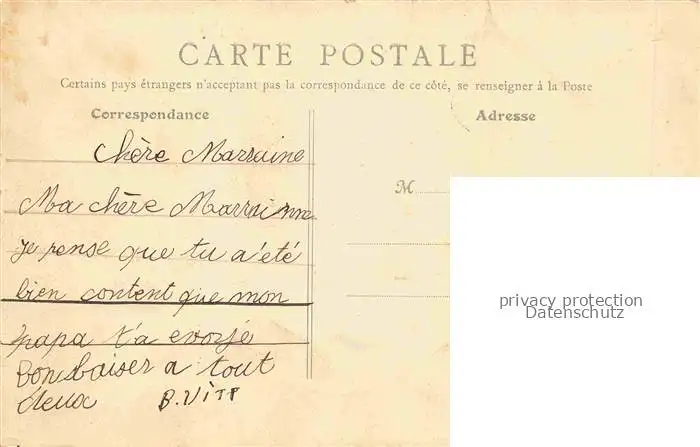 CARTE POSTALE
Certains pays étrangers n'acceptant pas la correspondance de ce côté, se renseigner à la Poste
Correspondance
Adresse
Chère Marraine
M
Ma chère Marrainne
je pense que tu a été
bien content que mon
papa t'a
Bon baiser a tout
deux
B. Vite
privacy protection
Datenschutz